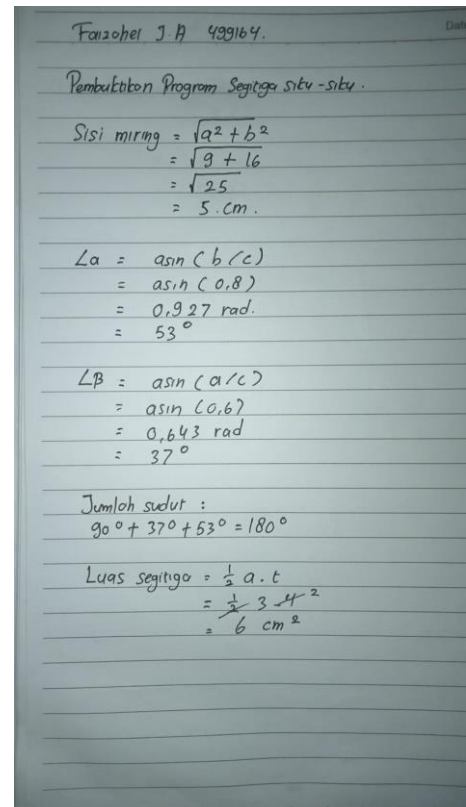 Faizohel J.A 499164.
Date
Pembuktikon Program Segitiga siku-siku.
Sisi miring = √a² + b²
= √9 + 16
= √25
= 5.cm.
∠a = asin (b/c)
= asin (0,8)
= 0,927 rad.
= 53°
∠B = asin (a/c)
= asin (0,6)
= 0,643 rad
= 37°
Jumloh sudut :
90° + 37° + 53° = 180°
Luas segitiga = ½ a.t
= ½ 3 4 ²
= 6 cm²